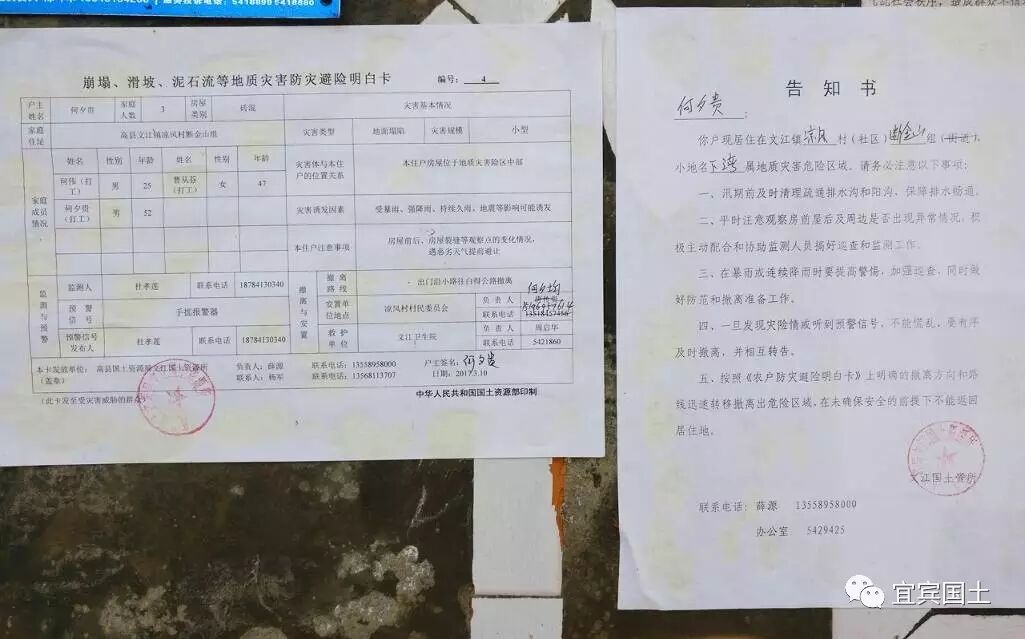 崩塌、滑坡、泥石流等地质灾害防灾避险明白卡
编号： 4
户主姓名 何夕贵 家庭人数 3 房屋类别 砖混 灾害基本情况
家庭住址 高县文江镇凉风村断金山组 灾害类型 地面塌陷 灾害规模 小型
家庭成员情况 姓名 性别 年龄 姓名 性别 年龄
何伟（打工） 男 25 曹从芬（打工） 女 47
何夕贵（打工） 男 52
灾害体与本住户的位置关系 本住户房屋位于地质灾害险区中部
灾害诱发因素 受暴雨、强降雨、持续久雨、地震等影响可能诱发
本住户注意事项 房屋前后、房屋裂缝等观察点的变化情况，
遇恶劣天气提前避让
监测与预警 监测人 杜孝莲 联系电话 18784130340
预警信号 手摇报警器
预警信号发布人 杜孝莲 联系电话 18784130340
撤离与安置 撤离路线 出门沿小路往自得公路撤离
安置单位地点 凉风村村民委员会 负责人
联系电话
救护单位 文江卫生院 负责人 周启华
联系电话 5421860
本卡发放单位：高县国土资源局文江国土资源所
（盖章）
负责人：薛源 联系电话：13558958000
联系人：杨军 联系电话：13568113707
户主签名：何夕贵
日期：2017.3.10
（此卡发至受灾害威胁的群众）
中华人民共和国国土资源部印制
告知书
何夕贵：
你户现居住在文江镇凉风村（社区）断金山组（街道），
小地名下湾属地质灾害危险区域。请务必注意以下事项：
一、汛期前及时清理疏通排水沟和阳沟，保障排水畅通。
二、平时注意观察房前屋后及周边是否出现异常情况，积
极主动配合和协助监测人员搞好巡查和监测工作。
三、在暴雨或连续降雨时要提高警惕，加强巡查，同时做
好防范和撤离准备工作。
四、一旦发现灾险情或听到预警信号，不能慌乱，要有序
及时撤离，并相互转告。
五、按照《农户防灾避险明白卡》上明确的撤离方向和路
线迅速转移撤离出危险区域，在未确保安全的前提下不能返回
居住地。
文江国土管所
联系电话：薛源 13558958000
办公室 5429425
宜宾国土